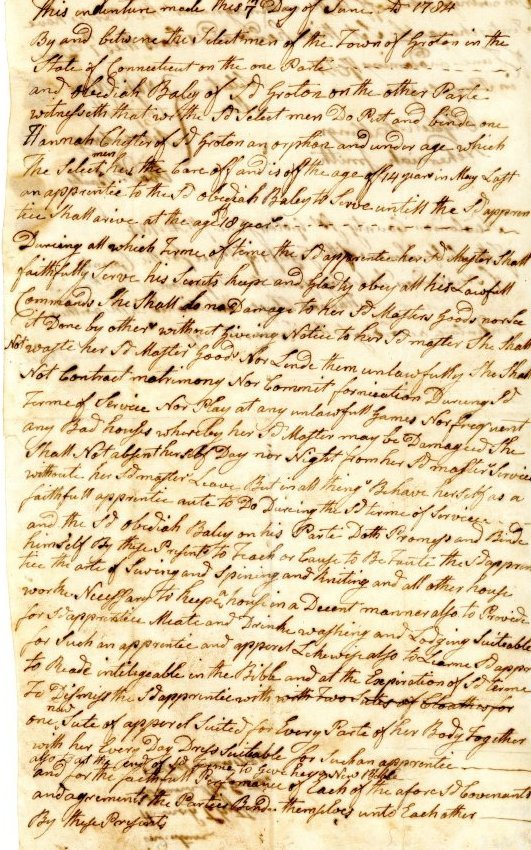 This indenture made this 7th Day of June AD 1784
By and betwene the Select men of the Town of Groton in the
State of Connecticut on the one Parte
and obediah Baley of Sd Groton on the other Parte
witnesseth that we the Sd Select men Do Putt and binde one
Hannah Chester of Sd Groton an orphan and under age which
The Select men has the Care off and is of the age of 14 years in May Last
an apprentice to the Sd obediah Baley to Serve untill the Sd appren
tice Shall arive at the age of 18 years
Dureing all which Terme of time the Sd apprentice her Sd Master Shall
faithfully Serve his Secrets keepe and gladly obey all his Lawfull
Commands She Shall do no Damage to her Sd Masters goods nor see
it Done by others without giveing Notice to her Sd master She Shall
Not waste her Sd Masters goods Nor Lende them unlawfully She Shall
Not Contract matrimony Nor Commit fornication Dureing Sd
Terme of Service Nor Play at any unlawfull games Nor frequent
any Bad houses whereby her Sd Master may be Damaged She
Shall Not absent herself Day nor Night from her Sd masters Service
without her Sd master Leave But in all things Behave herself as a
faithfull apprentice aute to Do Dureing the Sd terme of Service
and the Sd obediah Baley on his Parte Doth Promess and Binde
himself By these Presents to Teach or Cause to Be Taute the Sd appren
tice the arte of Sewing and Spining and kniting and all other house
worke Necessary to keepe a house in a Decent manner also to Provide
for Sd apprentice Meate and Drinke washing and Lodging Suiteable
for Such an apprentice and apperel Likewise also to Learne Sd appren
to Reade inteligeable in the Bible and at the Expiration of Sd Terme
To Dismess the Sd apprentice with with Two Sutes of Cloaths
one new Sute of apperel Suited for Every Parte of her Body Together
with her Every Day Dress Suitable for Such an apprentice
also at the end of Sd Terme to give her a New Bible
and for the faithfull Performance of Each of the afore Sd Covenants
and agreements the Parties Binde themselves unto Each other
By these Presents